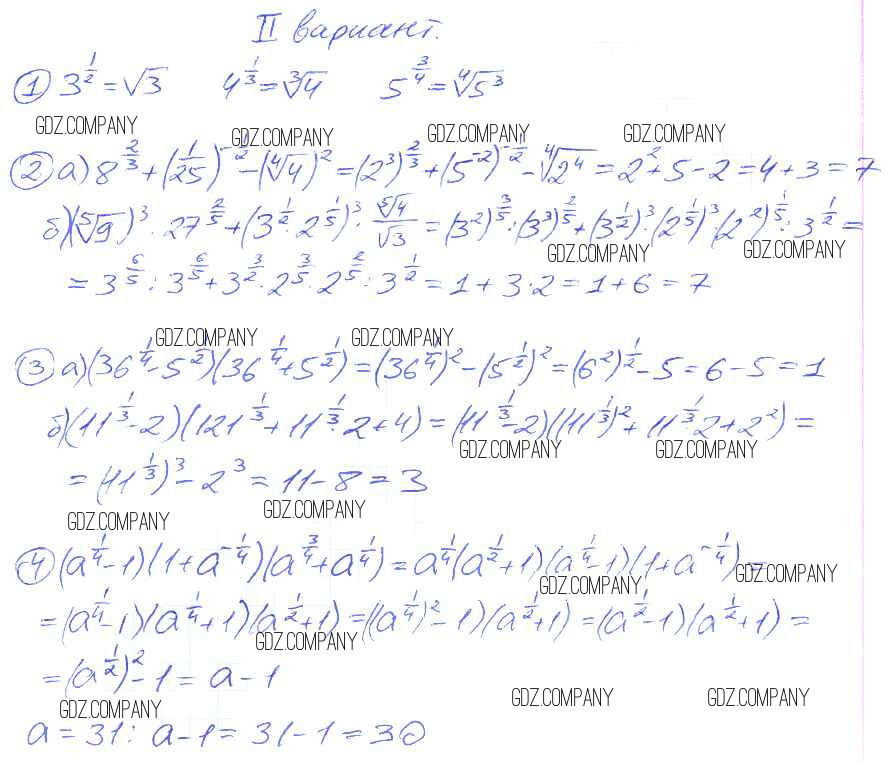 II вариант.
① 3^(1/2) = √3   4^(1/3) = ∛4   5^(3/4) = ∜5³
GDZ.COMPANY GDZ.COMPANY GDZ.COMPANY GDZ.COMPANY
② а) 8^(2/3) + (1/25)^(-1/2) - (∜4)² = (2³)^(2/3) + (5^(-2))^(-1/2) - ∜2⁴ = 2² + 5 - 2 = 4 + 3 = 7
б) (⁵√9)³ : 27^(2/5) + (3^(1/2) · 2^(1/5))³ · ⁵√4/√3 = (3²)^(3/5) : (3³)^(2/5) + (3^(1/2))³ · (2^(1/5))³ · (2²)^(1/5) : 3^(1/2) =
GDZ.COMPANY GDZ.COMPANY
= 3^(6/5) : 3^(6/5) + 3^(3/2) · 2^(3/5) · 2^(2/5) : 3^(1/2) = 1 + 3·2 = 1 + 6 = 7
GDZ.COMPANY GDZ.COMPANY
③ а) (36^(1/4) - 5^(1/2))(36^(1/4) + 5^(1/2)) = (36^(1/4))² - (5^(1/2))² = (6²)^(1/2) - 5 = 6 - 5 = 1
б) (11^(1/3) - 2)(121^(1/3) + 11^(1/3) · 2 + 4) = (11^(1/3) - 2)((11^(1/3))² + 11^(1/3) · 2 + 2²) =
GDZ.COMPANY GDZ.COMPANY
= (11^(1/3))³ - 2³ = 11 - 8 = 3
GDZ.COMPANY GDZ.COMPANY
④ (a^(1/4) - 1)(1 + a^(-1/4))(a^(3/4) + a^(1/4)) = a^(1/4)(a^(1/2) + 1)(a^(1/4) - 1)(1 + a^(-1/4)) =
GDZ.COMPANY GDZ.COMPANY
= (a^(1/4) - 1)(a^(1/4) + 1)(a^(1/2) + 1) = ((a^(1/4))² - 1)(a^(1/2) + 1) = (a^(1/2) - 1)(a^(1/2) + 1) =
GDZ.COMPANY
= (a^(1/2))² - 1 = a - 1
GDZ.COMPANY GDZ.COMPANY GDZ.COMPANY
a = 31: a - 1 = 31 - 1 = 30